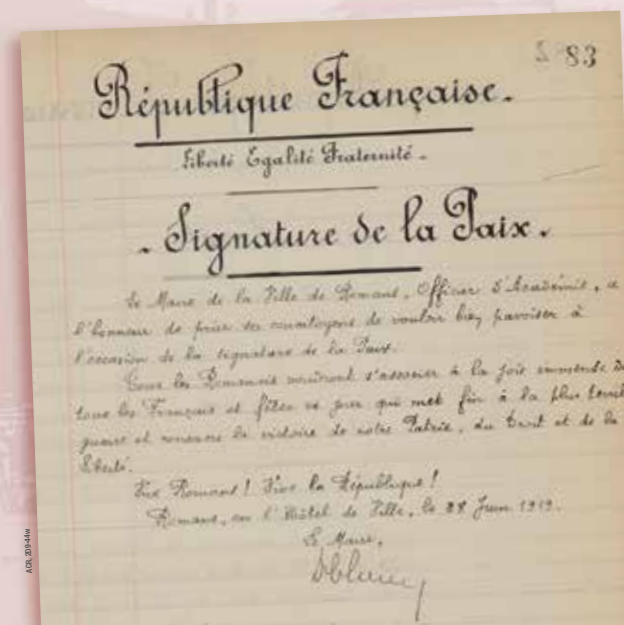 83
République Française.
Liberté Egalité Fraternité.
Signature de la Paix.
Le Maire de la Ville de Romans, Officier d'Académie, a
l'honneur de prier ses concitoyens de vouloir bien pavoiser à
l'occasion de la signature de la Paix.
Tous les Romanais voudront s'associer à la joie immense de
tous les Français et fêter ce jour qui met fin à la plus terrible
guerre et consacre la victoire de notre Patrie, du Droit et de la
Liberté.
Vive Romans! Vive la République!
Romans, en l'Hôtel de Ville, le 28 Juin 1919.
Le Maire,